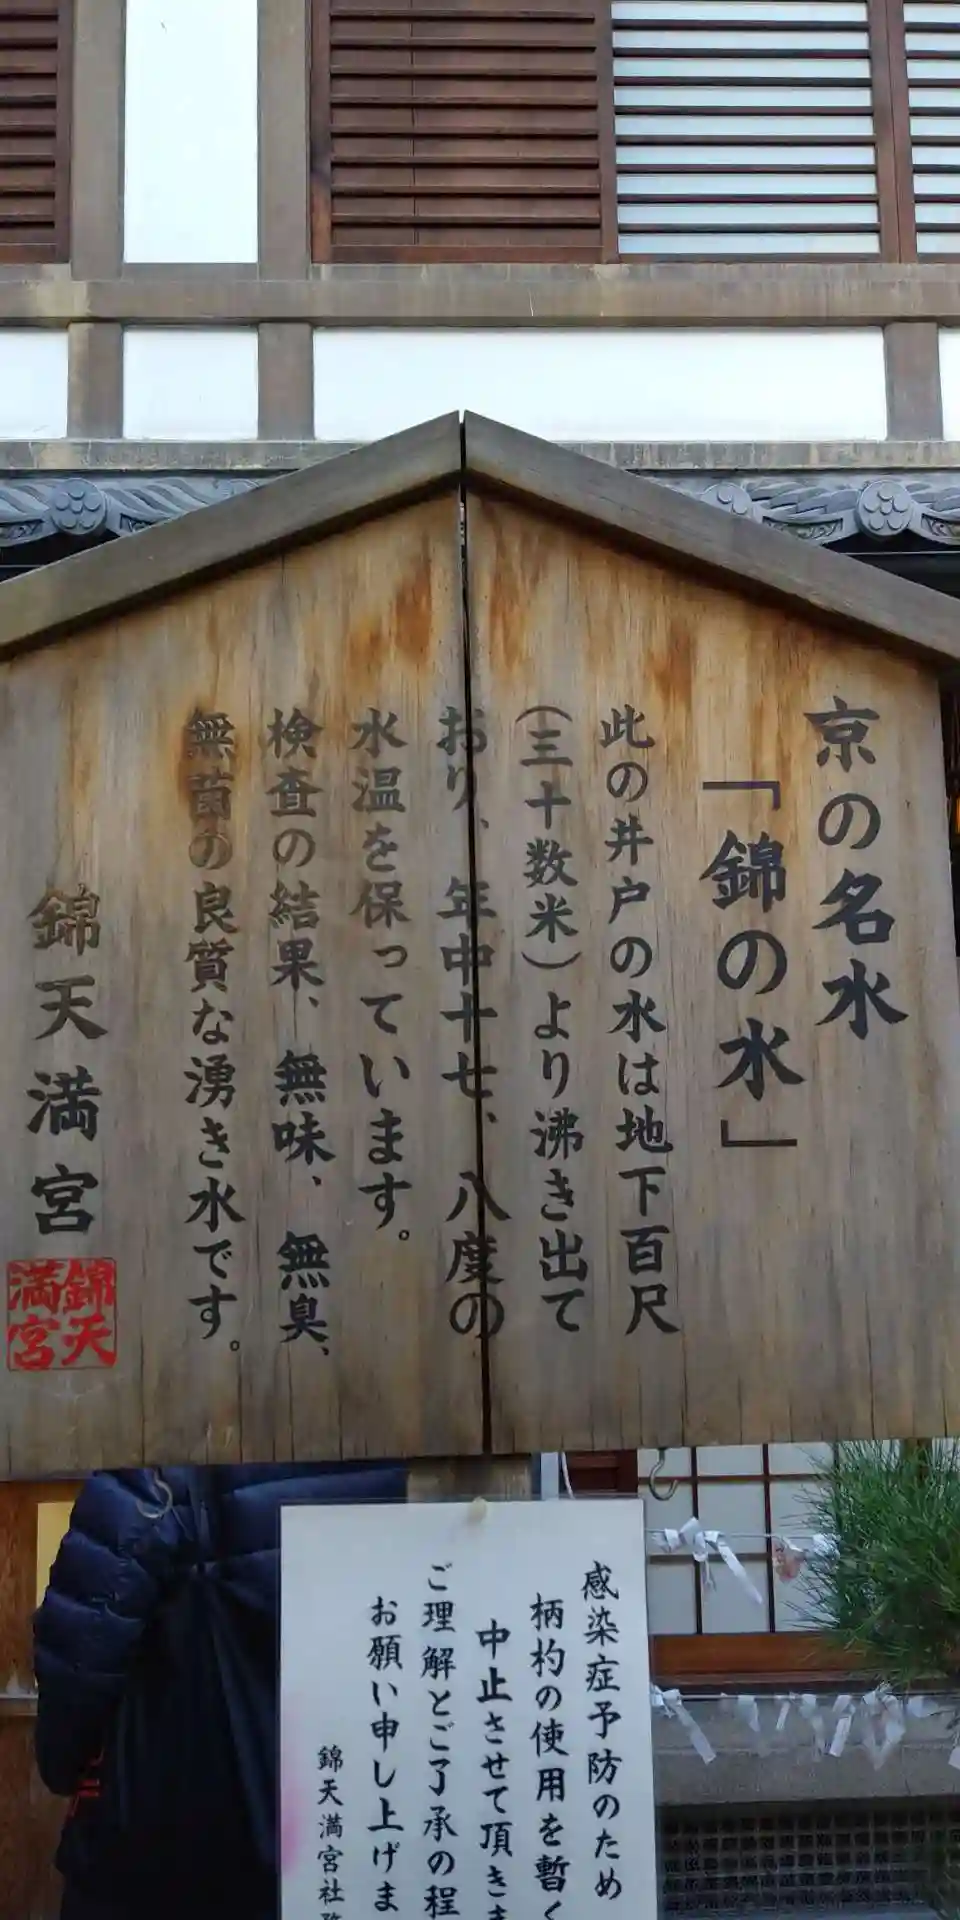 京の名水
「錦の水」
此の井戸の水は地下百尺
(三十数米)より沸き出て
おり、年中十七、八度の
水温を保っています。
検査の結果、無味、無臭、
無菌の良質な湧き水です。
錦天満宮
錦天
満宮
感染症予防のため
柄杓の使用を暫く
中止させて頂きま
ご理解とご了承の程
お願い申し上げま
錦天満宮社務